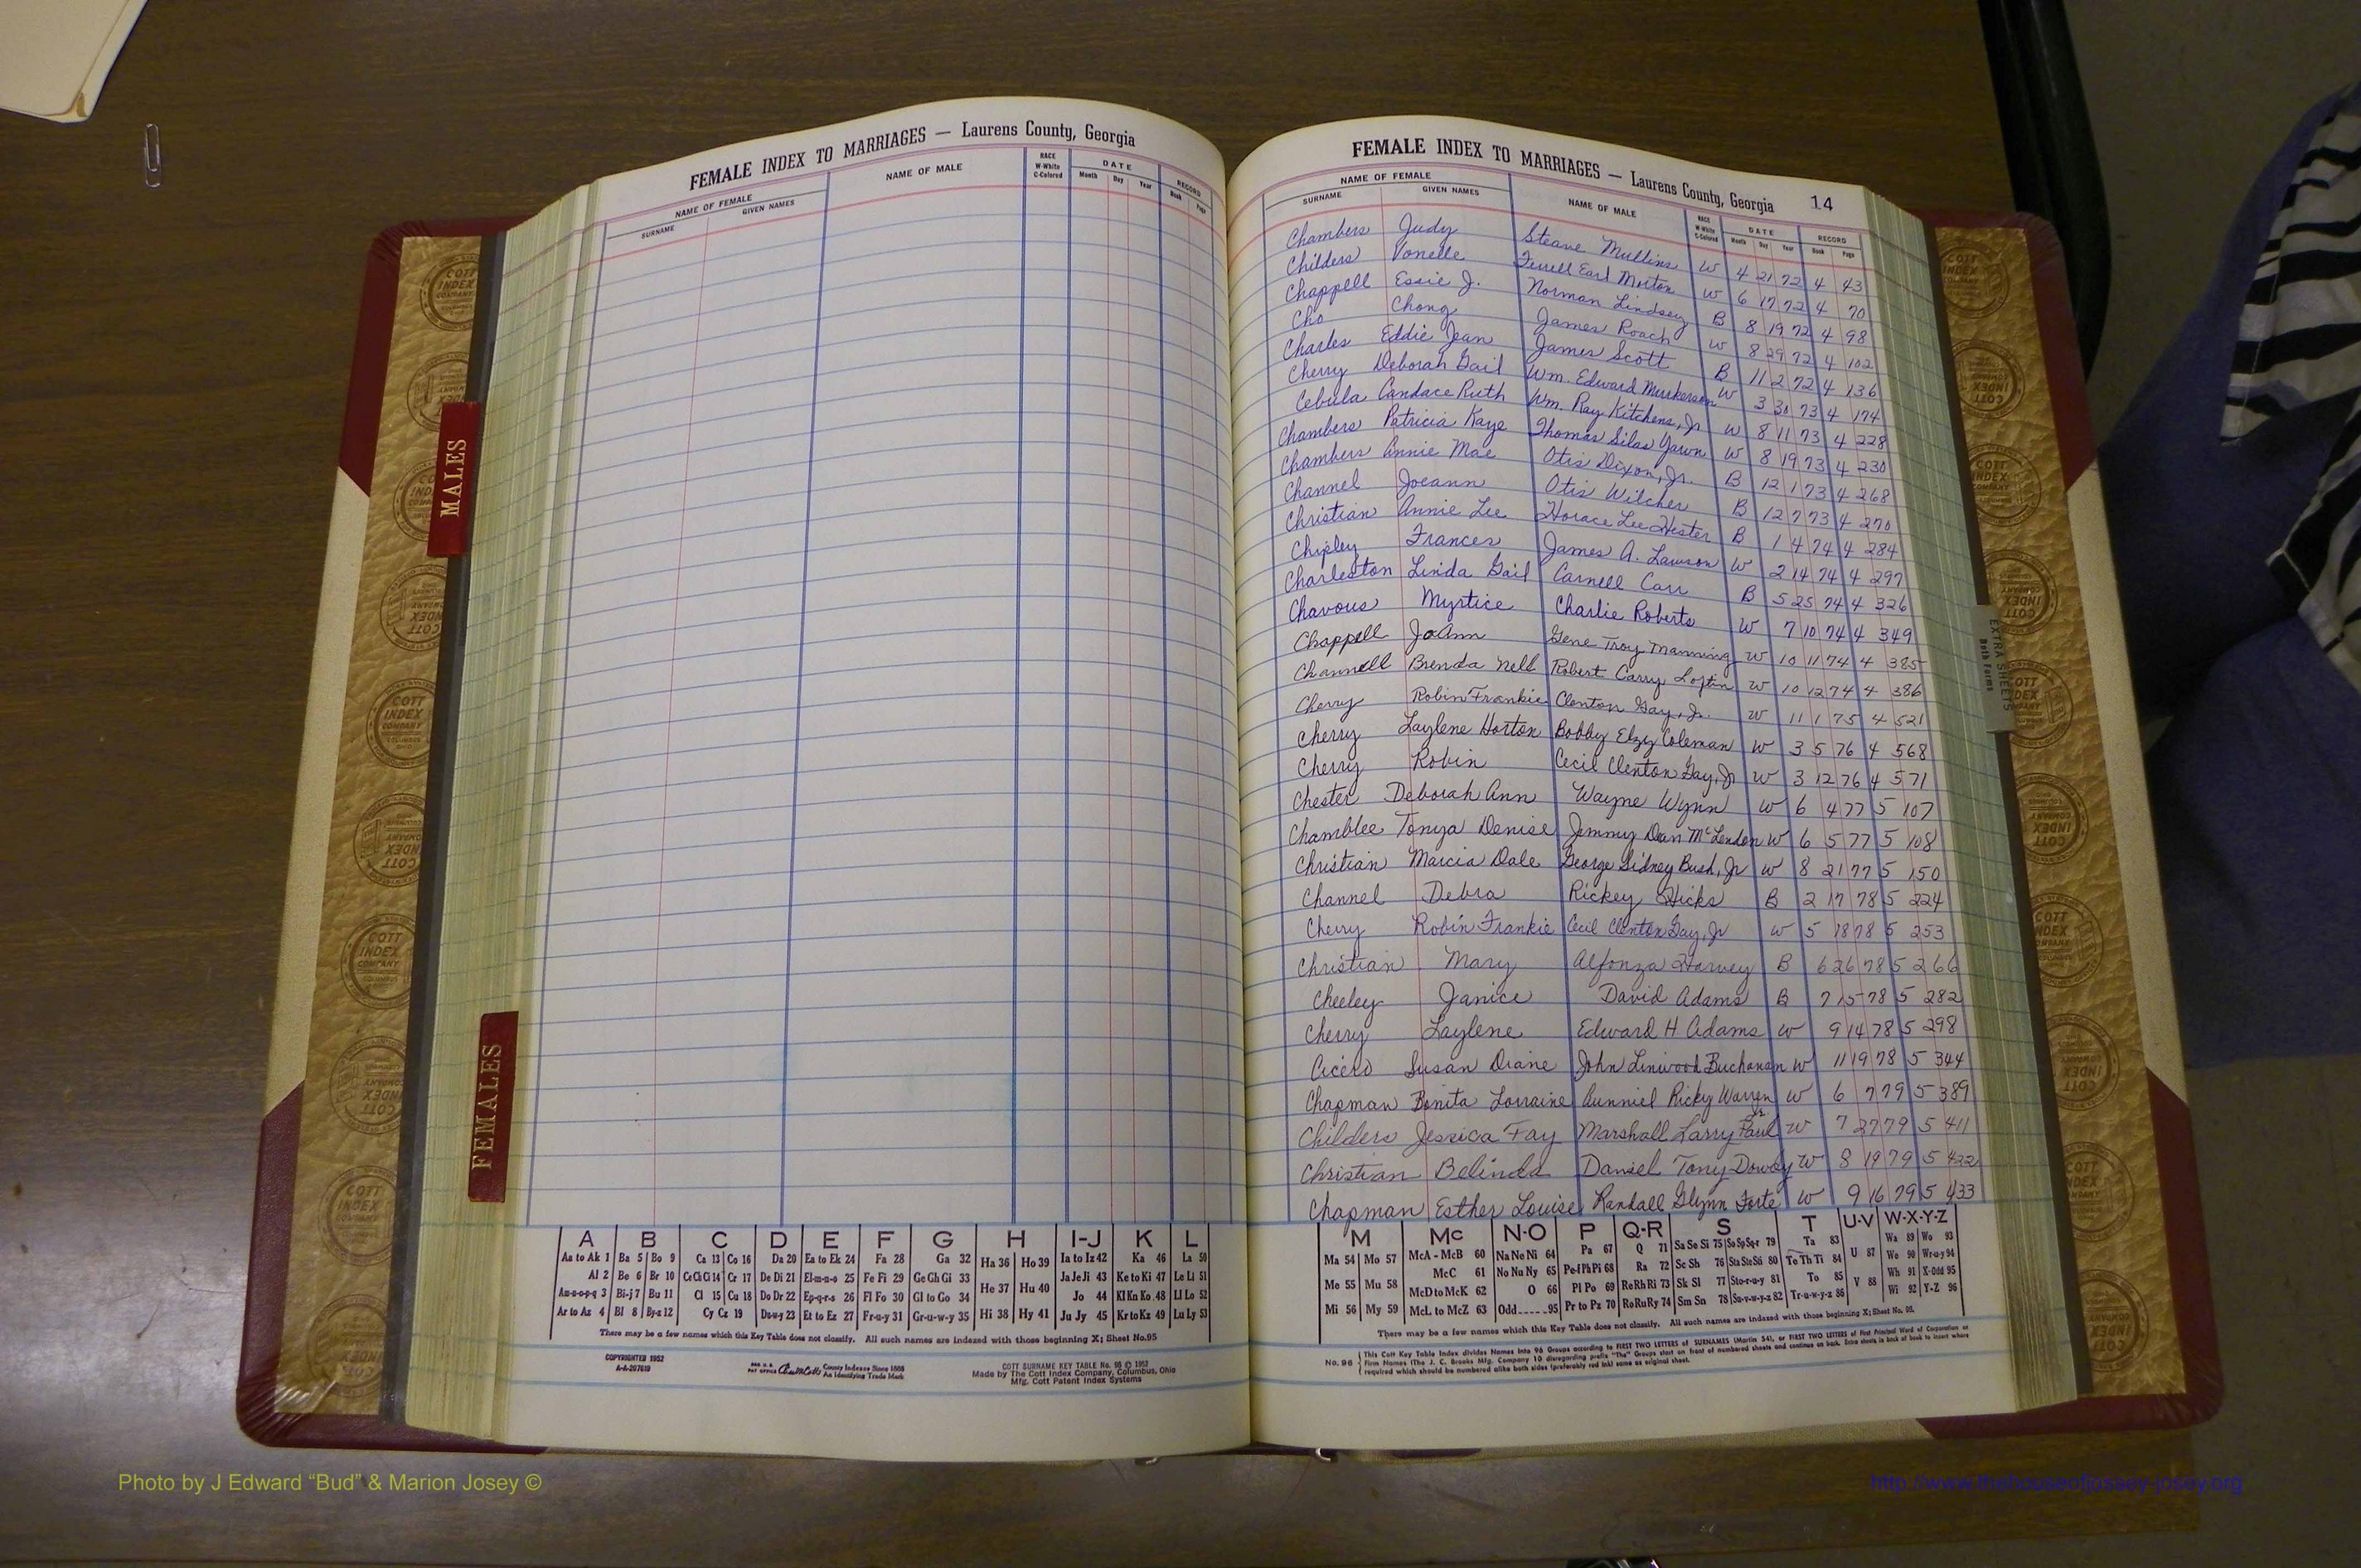 FEMALE INDEX TO MARRIAGES — Laurens County, Georgia
NAME OF FEMALE
SURNAME GIVEN NAMES
NAME OF MALE
RACE W-White C-Colored
DATE
Month Day Year
RECORD
Book Page
MALES
FEMALES
A B C D E F G H I-J K L
Aa to Ak 1 Ba 5 Bo 9 Ca 13 Co 16 Da 20 Ea to Ek 24 Fa 28 Ga 32 Ha 36 Ho 39 Ia to Iz 42 Ka 46 La 50
Al 2 Be 6 Br 10 Ce Ch Ci 14 Cr 17 De Di 21 El-m-n-o 25 Fe Fi 29 Ge Gh Gi 33 He 37 Hu 40 Ja Je Ji 43 Ke to Ki 47 Le Li 51
Am-n-o-p-q 3 Bi-j 7 Bu 11 Cl 15 Cu 18 Do Dr 22 Ep-q-r-s 26 Fl Fo 30 Gl to Go 34 Jo 44 Kl Kn Ko 48 Ll Lo 52
Ar to Az 4 Bl 8 By-z 12 Cy Cz 19 Du-w-y 23 Et to Ez 27 Fr-u-y 31 Gr-u-w-y 35 Hi 38 Hy 41 Ju Jy 45 Kr to Kz 49 Lu Ly 53
There may be a few names which this Key Table does not classify. All such names are indexed with those beginning X; Sheet No. 95
COPYRIGHTED 1952
A-A-207619
County Indexes Since 1888
An Identifying Trade Mark
COTT SURNAME KEY TABLE No. 96 © 1952
Made by The Cott Index Company, Columbus, Ohio
Mfg. Cott Patent Index Systems
FEMALE INDEX TO MARRIAGES — Laurens County, Georgia 14
NAME OF FEMALE
SURNAME GIVEN NAMES
NAME OF MALE
RACE W-White C-Colored
DATE
Month Day Year
RECORD
Book Page
Chambers Judy Steave Mullins W 4 21 72 4 43
Childers Vonelle Terrell Earl Morton W 6 17 72 4 70
Chappell Essie J. Norman Lindsey B 8 19 72 4 98
Cho Chong James Roach W 8 29 72 4 102
Charles Eddie Jean James Scott B 11 2 72 4 136
Cherry Deborah Gail Wm. Edward Murkerson W 3 31 73 4 174
Cebula Candace Ruth Wm. Ray Kitchens, Jr W 8 11 73 4 228
Chambers Patricia Kaye Thomas Silas Yawn W 8 19 73 4 230
Chambers Annie Mae Otis Dixon, Jr. B 12 1 73 4 268
Channel Joeann Otis Wilcher B 12 7 73 4 270
Christian Annie Lee Horace Lee Hester B 1 4 74 4 284
Chipley Frances James A. Lawson W 2 14 74 4 297
Charleston Linda Gail Carnell Carr B 5 25 74 4 326
Chavous Myrtice Charlie Roberts W 7 10 74 4 349
Chappell JoAnn Gene Troy Manning W 10 11 74 4 385
Channell Brenda Nell Robert Carry Loftin W 10 12 74 4 386
Cherry Robin Frankie Clenton Gay, Jr. W 11 1 75 4 521
Cherry Laylene Horton Bobby Elzy Coleman W 3 5 76 4 568
Cherry Robin Cecil Clenton Gay, Jr W 3 12 76 4 571
Chester Deborah Ann Wayne Wynn W 6 4 77 5 107
Chamblee Tonya Denise Jimmy Dean McLendon W 6 5 77 5 108
Christian Marcia Dale George Sidney Bush, Jr W 8 21 77 5 150
Channel Debra Rickey Hicks B 2 17 78 5 224
Cherry Robin Frankie Cecil Clenton Gay, Jr W 5 18 78 5 253
Christian Mary Alfonza Harvey B 6 26 78 5 266
Cheeley Janice David Adams B 7 15 78 5 282
Cherry Laylene Edward H Adams W 9 14 78 5 298
Cicero Susan Diane John Linwood Buchanan W 11 19 78 5 344
Chapman Bonita Lorraine Ricky Warren W 6 7 79 5 389
Childers Jessica Fay Marshall Larry Paul Jr W 7 27 79 5 411
Christian Belinda Daniel Tony Dowdy W 8 19 79 5 422
Chapman Esther Louise Randall Glynn Forte W 9 16 79 5 433
M Mc N-O P Q-R S T U-V W-X-Y-Z
Ma 54 Mo 57 McA - McB 60 Na Ne Ni 64 Pa 67 Q 71 Sa Se Si 75 So Sp Sq-r 79 Ta 83 U 87 Wa 89 Wo 93
Me 55 Mu 58 McC 61 No Nu Ny 65 Pe-f Ph Pi 68 Ra 72 Sc Sh 76 Sta Ste Sti 80 Te Th Ti 84 We 90 Wr-u-y 94
McD to McK 62 O 66 Pl Po 69 Re Rh Ri 73 Sk Sl 77 Sto-r-u-y 81 To 85 V 88 Wh 91 X-Odd 95
Mi 56 My 59 McL to McZ 63 Odd-----95 Pr to Pz 70 Ro Ru Ry 74 Sm Sn 78 Su-v-w-y-z 82 Tr-u-w-y-z 86 Wi 92 Y-Z 96
There may be a few names which this Key Table does not classify. All such names are indexed with those beginning X; Sheet No. 95.
No. 96 This Cott Key Table Index divides Names into 96 Groups according to FIRST TWO LETTERS of SURNAMES (Martin 54), or FIRST TWO LETTERS of First Principal Word of Corporation or
Firm Names (The J. C. Brooks Mfg. Company 10 disregarding prefix "The") Groups start on front of numbered sheets and continue on back. Extra sheets in back of book to insert where
required which should be numbered alike both sides (preferably red ink) same as original sheet.
EXTRA SHEETS
Both Forms
COTT INDEX COMPANY COLUMBUS OHIO
Photo by J Edward “Bud” & Marion Josey ©
http://www.thehouseofjossey-josey.org